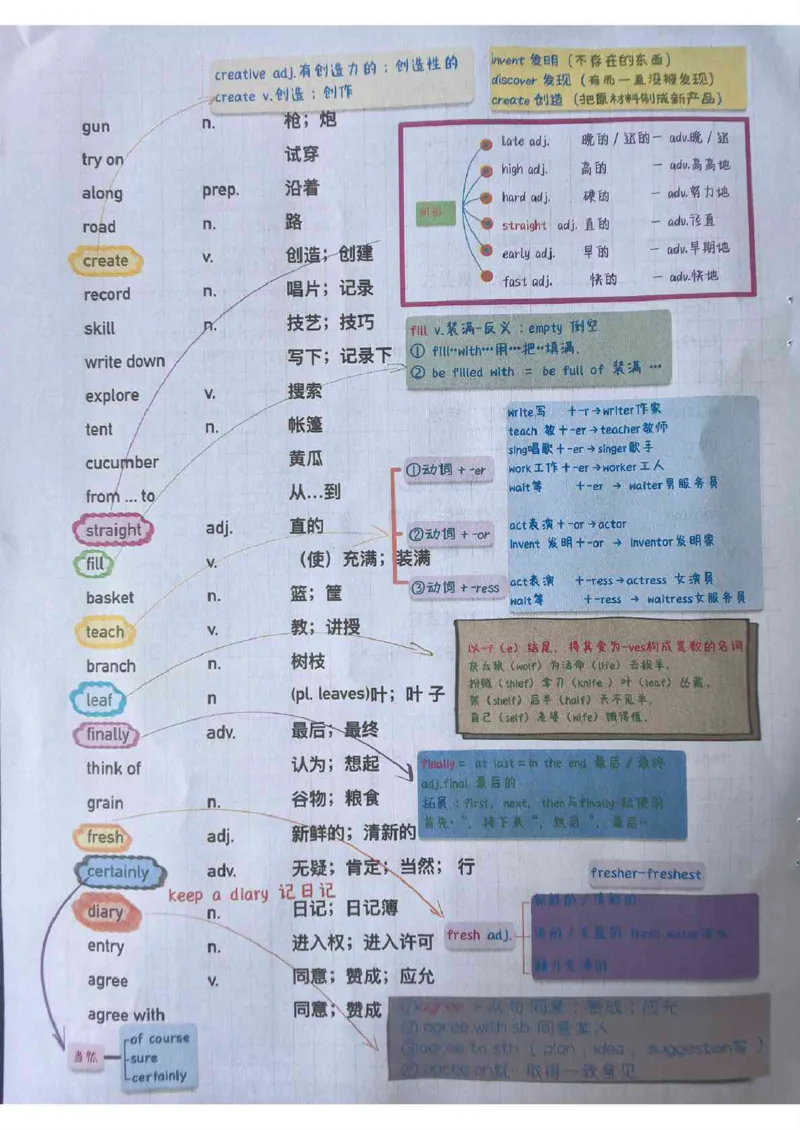 creative adj.有创造力的；创造性的
create v.创造；创作
invent 发明（不存在的东西）
discover 发现（有而一直没被发现）
create 创造（把原材料制成新产品）
gun n. 枪；炮
try on 试穿
along prep. 沿着
road n. 路
create v. 创造；创建
record n. 唱片；记录
skill n. 技艺；技巧
write down 写下；记录下
explore v. 搜索
tent n. 帐篷
cucumber 黄瓜
from ... to 从...到
straight adj. 直的
fill v. （使）充满；装满
basket n. 篮；筐
teach v. 教；讲授
branch n. 树枝
leaf n (pl. leaves)叶；叶 子
finally adv. 最后；最终
think of 认为；想起
grain n. 谷物；粮食
fresh adj. 新鲜的；清新的
certainly adv. 无疑；肯定；当然； 行
keep a diary 记日记
diary n. 日记；日记簿
entry n. 进入权；进入许可
agree v. 同意；赞成；应允
agree with 同意；赞成
同形
late adj. 晚的/迟的— adv.晚/迟
high adj. 高的 — adv.高高地
hard adj. 硬的 — adv.努力地
straight adj. 直的 — adv.径直
early adj. 早的 — adv.早期地
fast adj. 快的 — adv.快地
fill v.装满-反义：empty 倒空
① fill··with···用···把··填满.
② be filled with = be full of 装满 ···
①动词+-er
write写 +-r→writer作家
teach 教+-er→teacher教师
sing唱歌+-er→singer歌手
work工作+-er→worker工人
wait等 +-er → waiter男服务员
②动词+-or
act表演+-or→actor
invent 发明+-or → inventor发明家
③动词+-ress
act表演 +-ress→actress 女演员
wait等 +-ress → waitress女服务员
以-f（e）结尾，将其变为-ves构成复数的名词
灰太狼（wolf）为活命（life）去捉羊，
扮贼（thief）拿刀（knife）叶（leaf）丛藏，
架（shelf）后半（half）天不见羊，
自己（self）老婆（wife）饿得慌。
finally= at last=in the end 最后/最终
adj.final 最后的
拓展：first, next, then与finally 连使用
首先·“，接下来“，然后“，最后··
fresher-freshest
fresh adj.
新鲜的/清新的
淡的/无盐的 fresh water淡水
①agree +从句 同意；赞成；应允
② agree with sb 同意某人
③agree to sth（plan，idea，suggestion等）
取得一致意见
当然
of course
sure
certainly